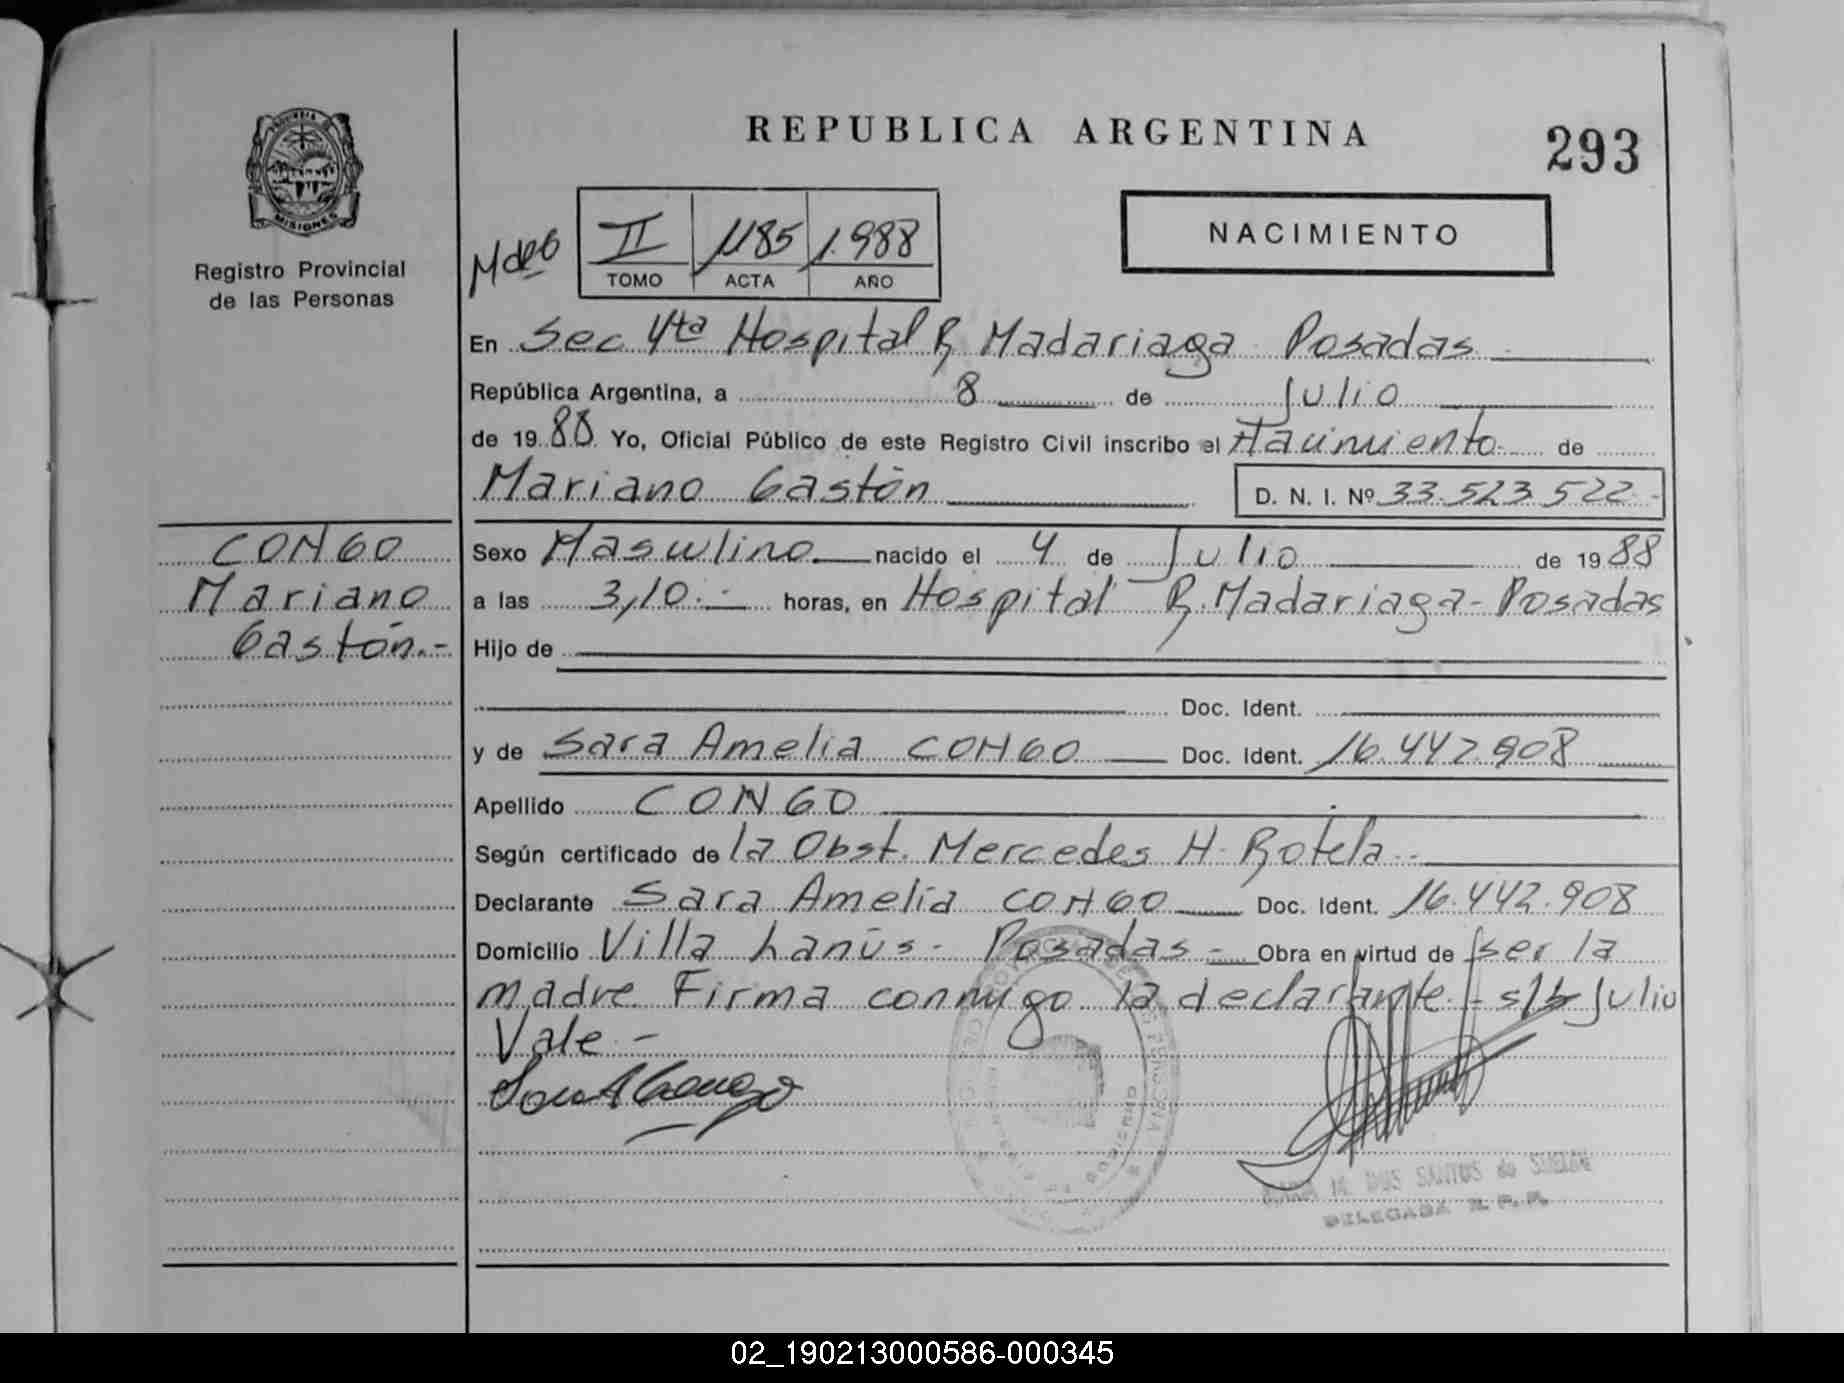 REPUBLICA ARGENTINA
293
PROVINCIA DE
MISIONES
Registro Provincial
de las Personas
II 1185 1.988
TOMO ACTA AÑO
NACIMIENTO
En Sec 4ta Hospital R. Madariaga Posadas
República Argentina, a 8 de Julio
de 1988 Yo, Oficial Público de este Registro Civil inscribo el Nacimiento de
Mariano Gastón D. N. I. Nº 33.523.522.-
CONGO
Mariano
Gastón.-
Sexo Masculino nacido el 4 de Julio de 1988
a las 3,10.- horas, en Hospital R. Madariaga - Posadas
Hijo de
Doc. Ident.
y de Sara Amelia CONGO Doc. Ident. 16.442.908
Apellido CONGO
Según certificado de la Obst. Mercedes H. Rotela.-
Declarante Sara Amelia CONGO Doc. Ident. 16.442.908
Domicilio Villa Lanús - Posadas - Obra en virtud de ser la
madre. Firma conmigo la declarante.- s/b Julio
Vale.-
DOS SANTOS de
DELEGADA R. P. P.
02_190213000586-000345